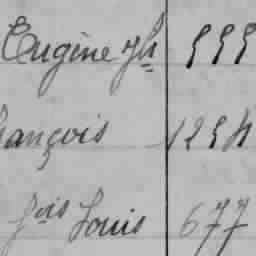 Eugène Jh 555
ançois 1254
fois Louis 677